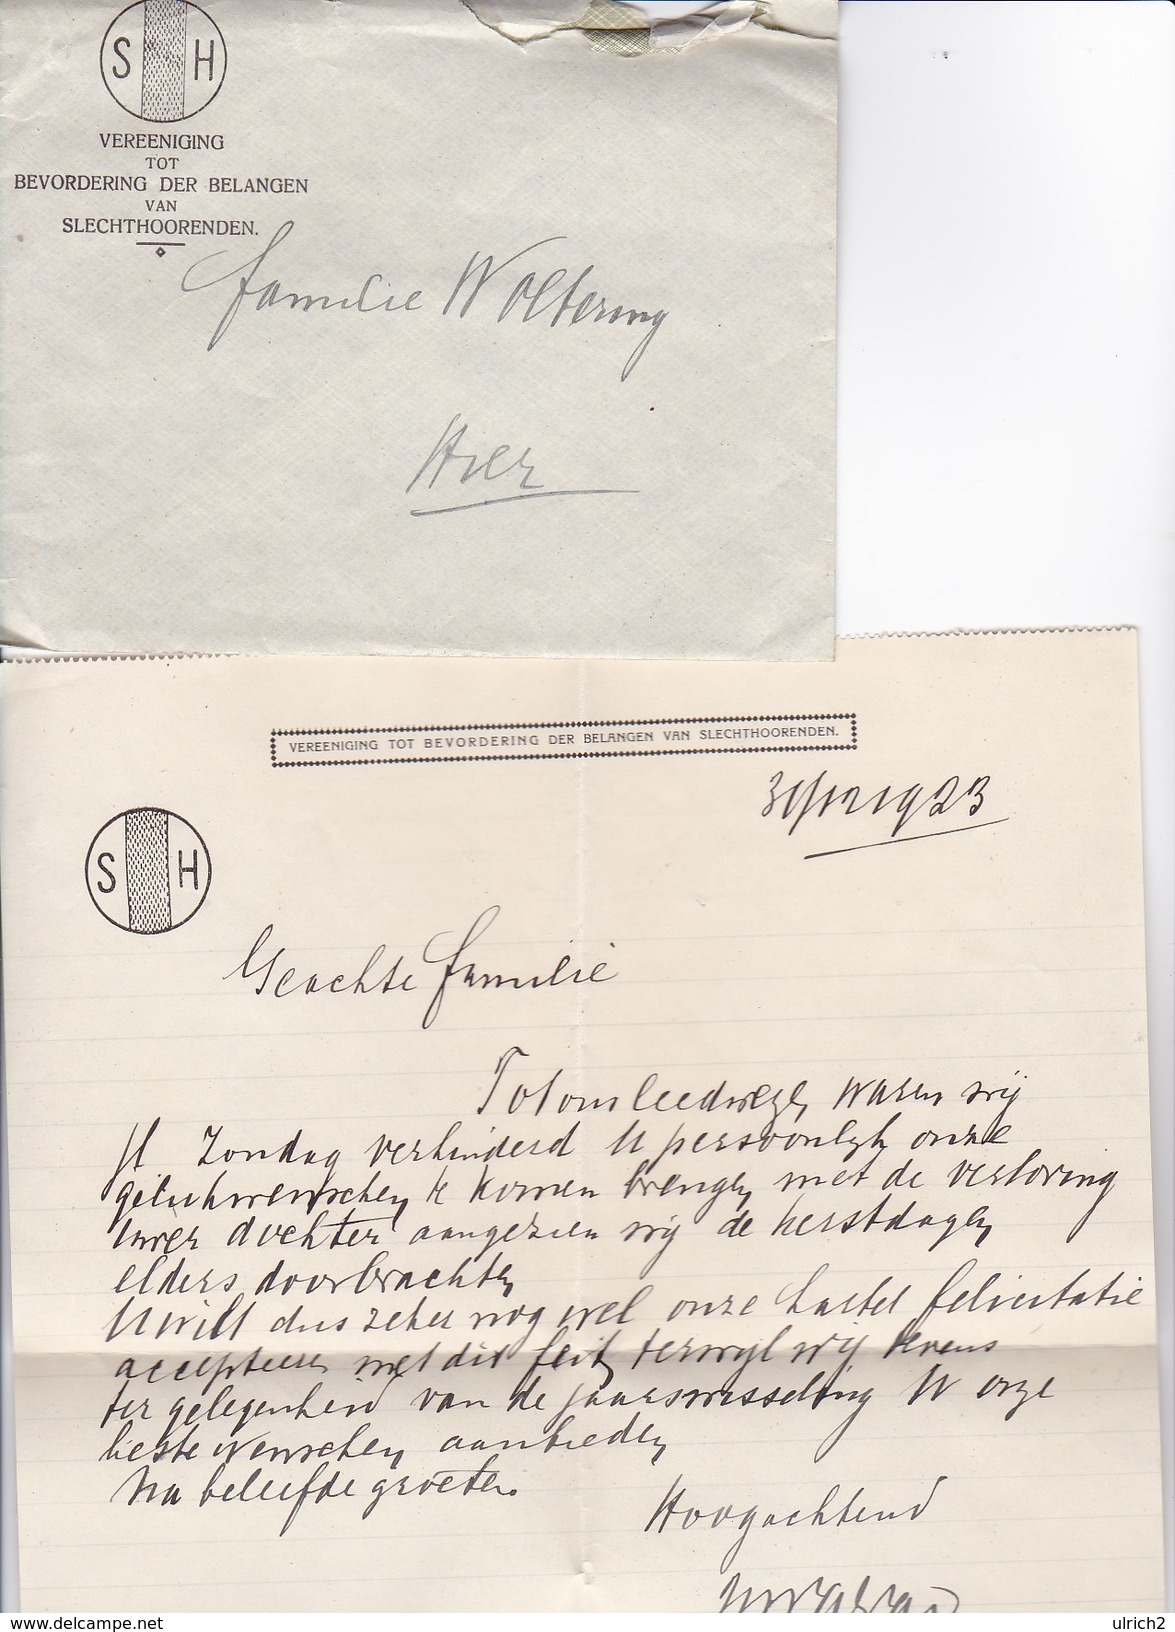 S H
VEREENIGING
TOT
BEVORDERING DER BELANGEN
VAN
SLECHTHOORENDEN.
Familie Woltering
Hier
VEREENIGING TOT BEVORDERING DER BELANGEN VAN SLECHTHOORENDEN.
31/12 1923
S H
Geachte familie
Tot ons leedwezen waren wij
jl Zondag verhinderd U persoonlijk onze
gelukwenschen te komen brengen met de verloving
Uwer dochter aangezien wij de kerstdagen
elders doorbrachten
U wilt dus zeker nog wel onze hartel felicitatie
accepteeren met dit feit, terwijl wij tevens
ter gelegenheid van de jaarswisseling U onze
beste wenschen aanbieden
Na beleefde groeten.
Hoogachtend
delcampe.net
ulrich2